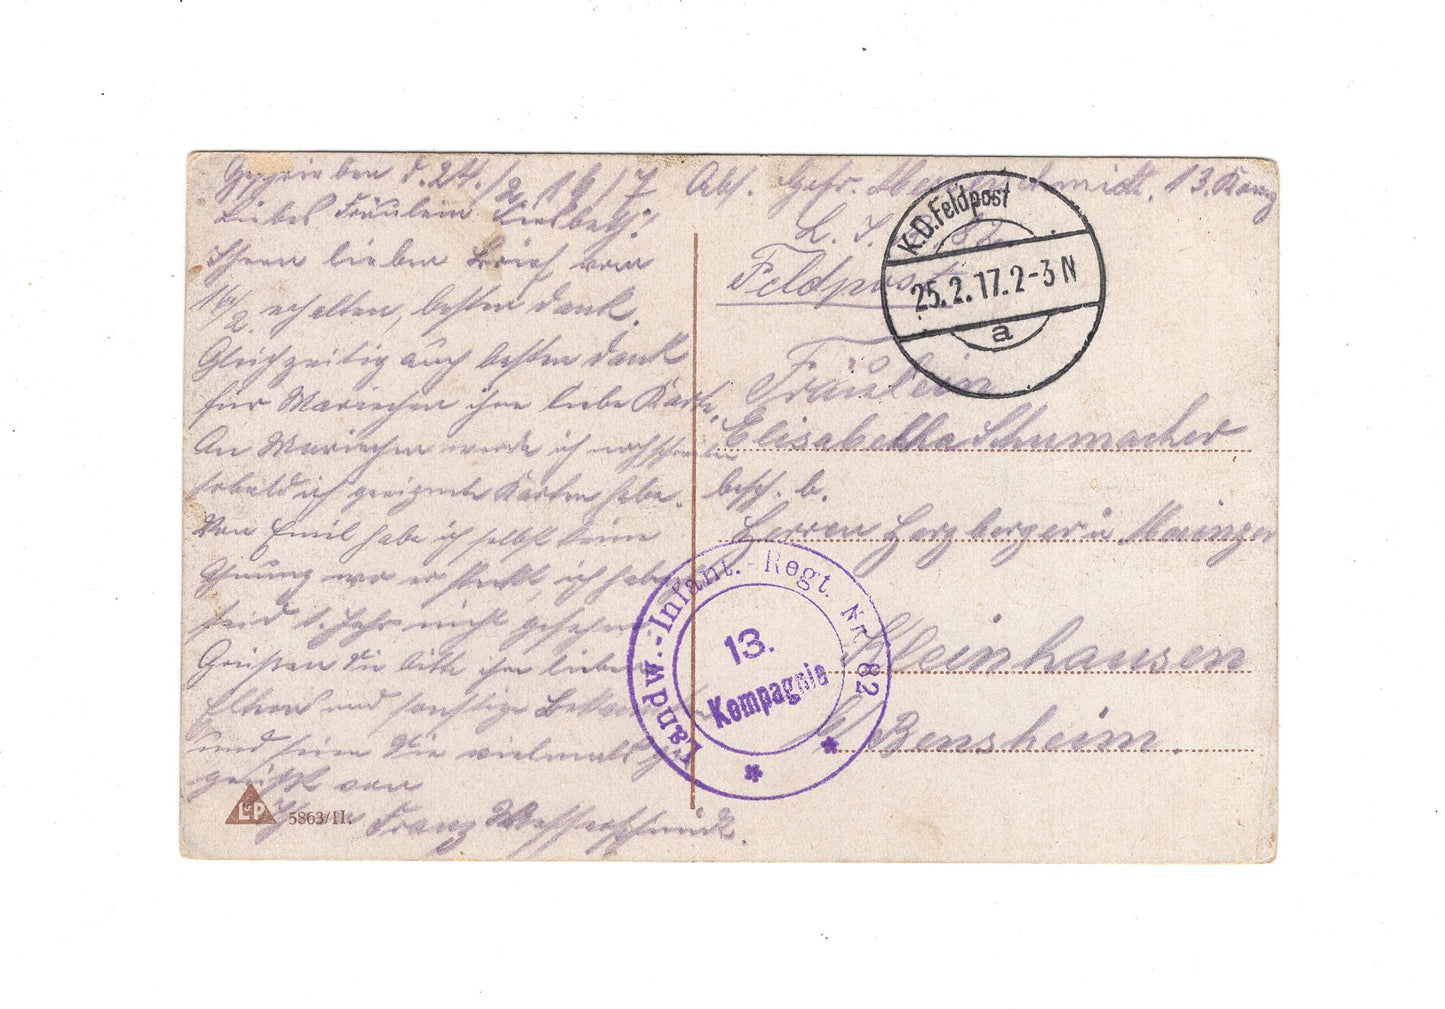 Geschrieben d. 24./2 1917
Liebes Fräulein Liesbeth!
Ihren lieben Brief vom
16/2. erhalten, besten Dank.
Gleichzeitig auch besten Dank
für Mariechen ihre liebe Karte.
An Mariechen werde ich noch schreiben
sobald ich geeignete Karten habe.
Von Emil habe ich selbst keine
Ahnung wo er steckt, ich habe
seid 1. Jahr nicht gesehen
Grüßen Sie bitte ihre lieben
Eltern und sonstige Bekannte
und seien Sie vielmals ge
grüßt von
Ihrem Franz
L&P
5863/II.
Abs. Gefr. 13. Komp
L. I. R. 82
Feldpost
K.D. Feldpost
25.2.17.2-3 N
a
Fräulein
Elisabetha Schumacher
besch. b.
Herren Herzberger u Mainzer
Kleinhausen
b/ Bensheim.
Landw.-Infant.-Regt. Nr. 82
13.
Kompagnie